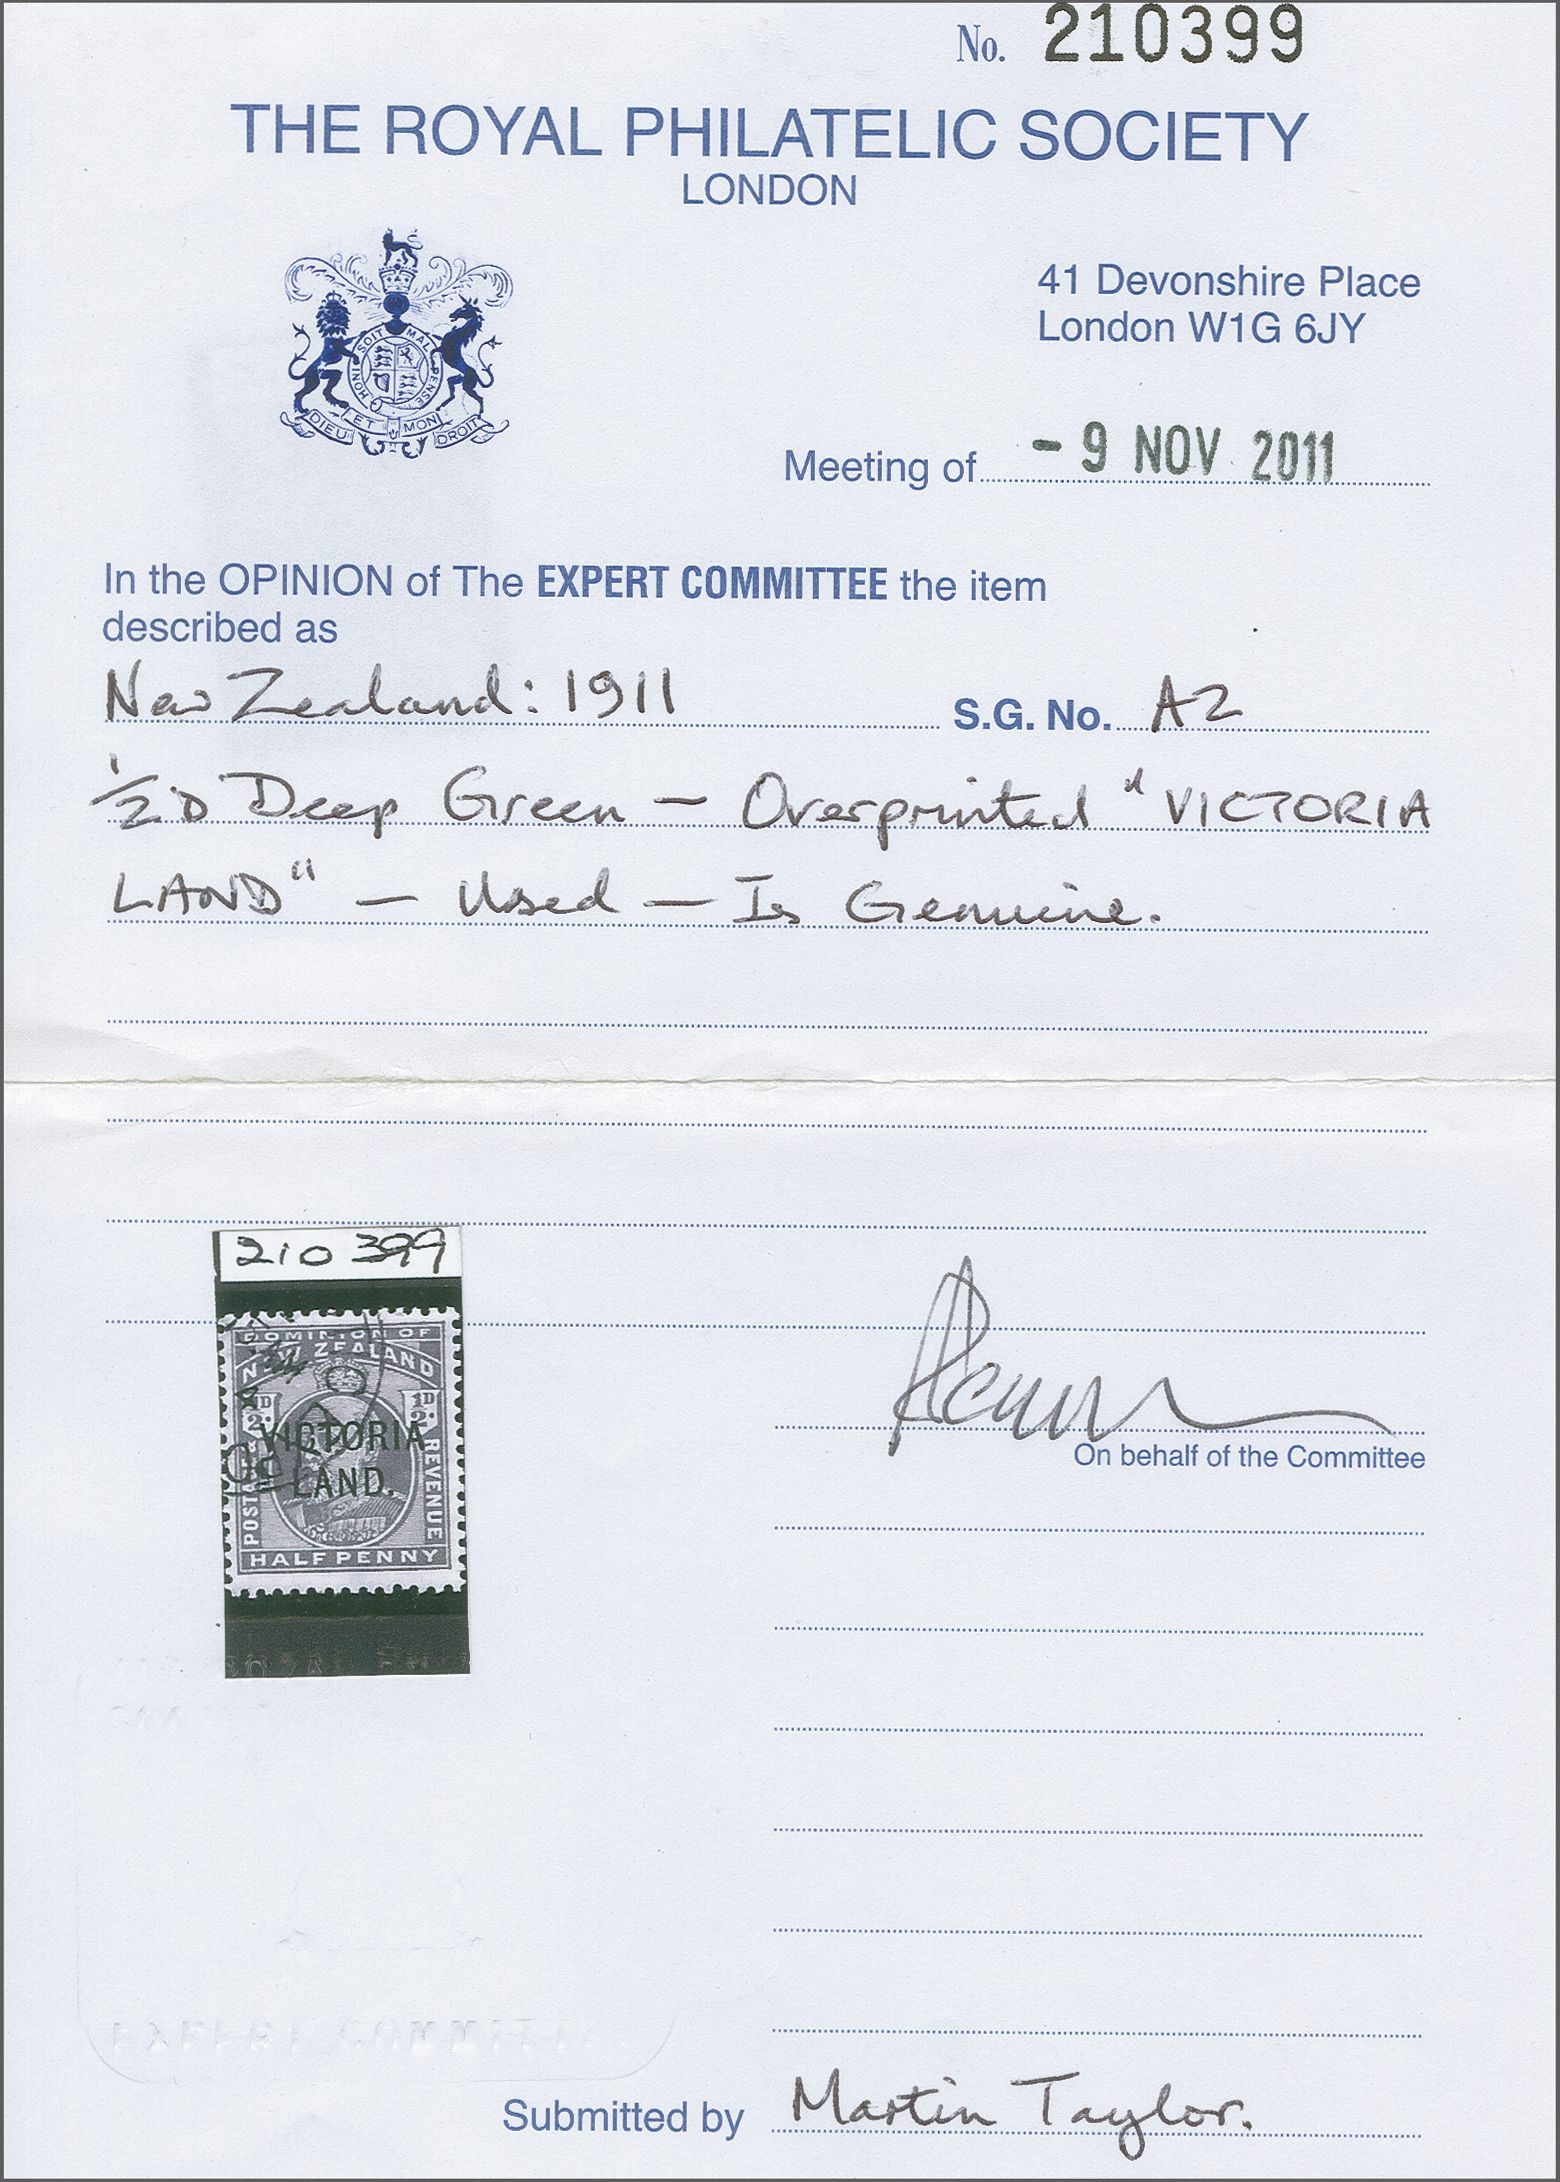 No. 210399
THE ROYAL PHILATELIC SOCIETY
LONDON
41 Devonshire Place
London W1G 6JY
HONI SOIT MAL PENSE
DIEU ET MON DROIT
Meeting of - 9 NOV 2011
In the OPINION of The EXPERT COMMITTEE the item
described as
New Zealand: 1911 S.G. No. A2
1/2D Deep Green - Overprinted "VICTORIA
LAND" - Used - Is Genuine.
210399
DOMINION OF
NEW ZEALAND
½D ½D
VICTORIA
LAND.
POSTAGE REVENUE
HALF PENNY
On behalf of the Committee
Submitted by Martin Taylor.